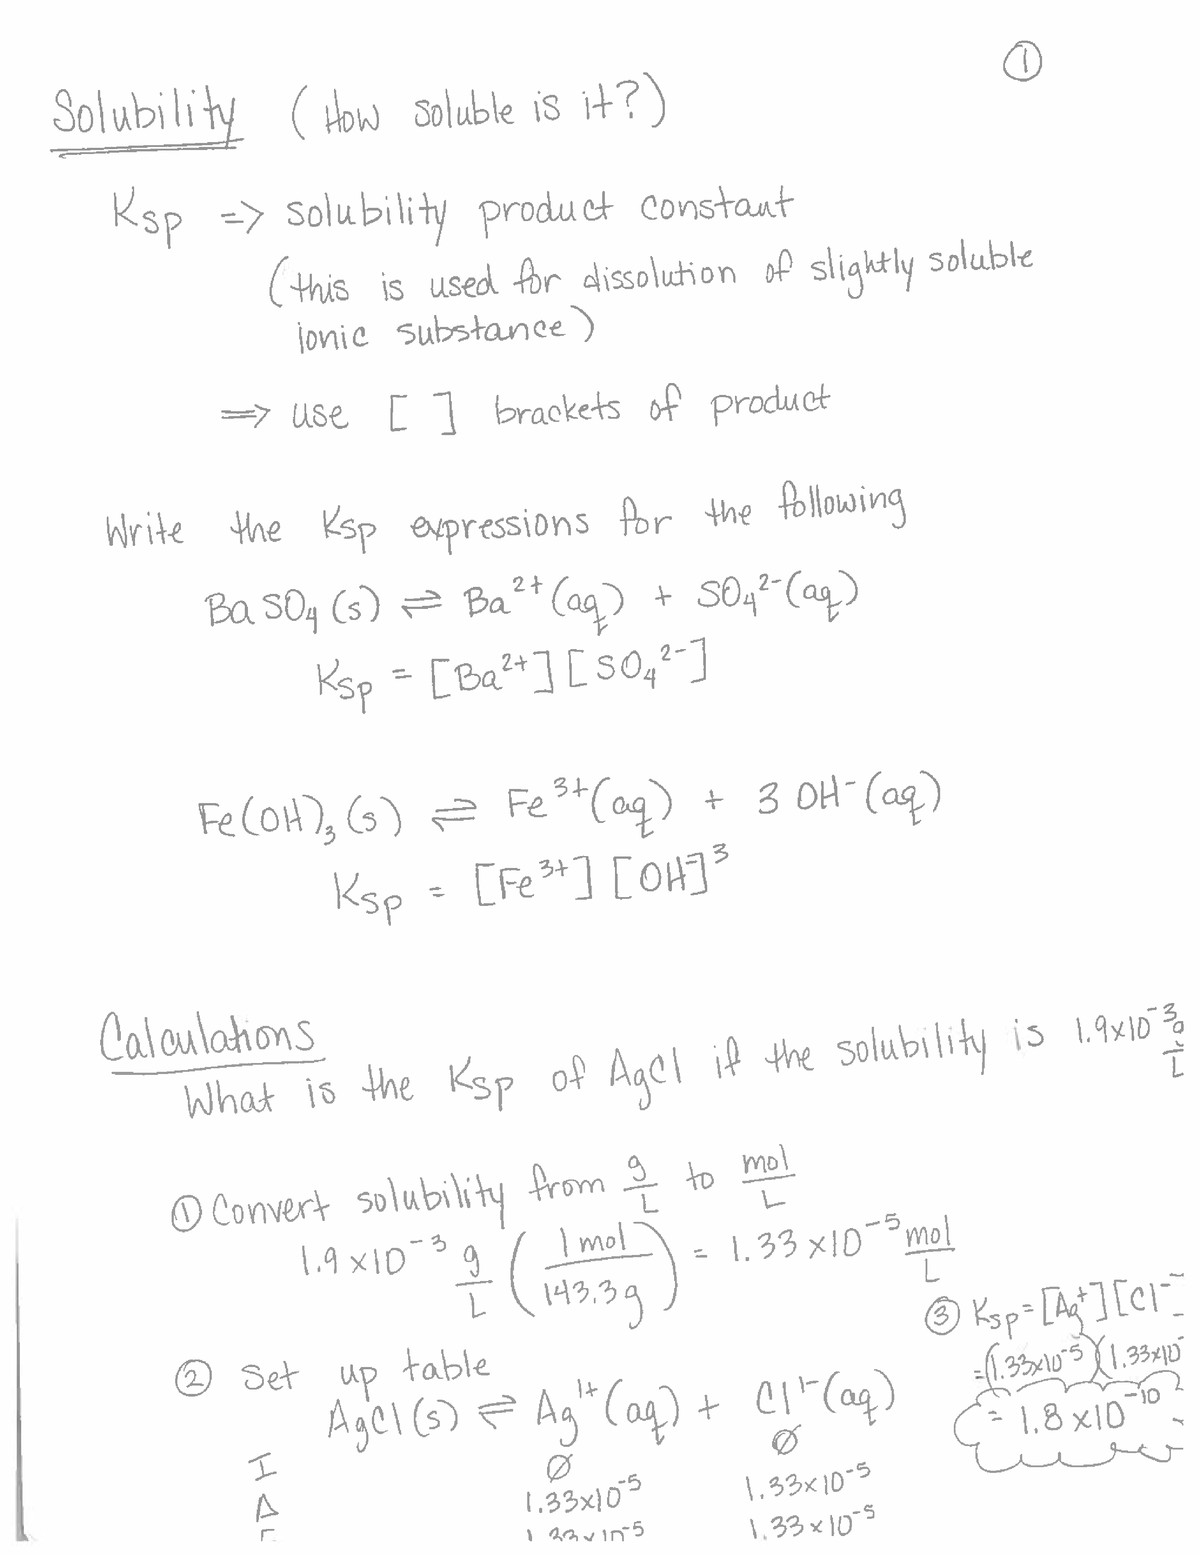 ①
Solubility (How soluble is it?)
Ksp => solubility product constant
(this is used for dissolution of slightly soluble
ionic substance)
=> use [ ] brackets of product
Write the Ksp expressions for the following
BaSO₄(s) ⇌ Ba²⁺(aq) + SO₄²⁻(aq)
Ksp = [Ba²⁺][SO₄²⁻]
Fe(OH)₃(s) ⇌ Fe³⁺(aq) + 3 OH⁻(aq)
Ksp = [Fe³⁺][OH⁻]³
Calculations
What is the Ksp of AgCl if the solubility is 1.9x10⁻³ g/L
① Convert solubility from g/L to mol/L
1.9x10⁻³ g/L (1 mol/143.3g) = 1.33x10⁻⁵ mol/L
③ Ksp = [Ag⁺][Cl⁻
= (1.33x10⁻⁵)(1.33x10⁻
= 1.8x10⁻¹⁰
② Set up table
AgCl(s) ⇌ Ag¹⁺(aq) + Cl¹⁻(aq)
I Ø Ø
Δ 1.33x10⁻⁵ 1.33x10⁻⁵
E 1.33x10⁻⁵ 1.33x10⁻⁵